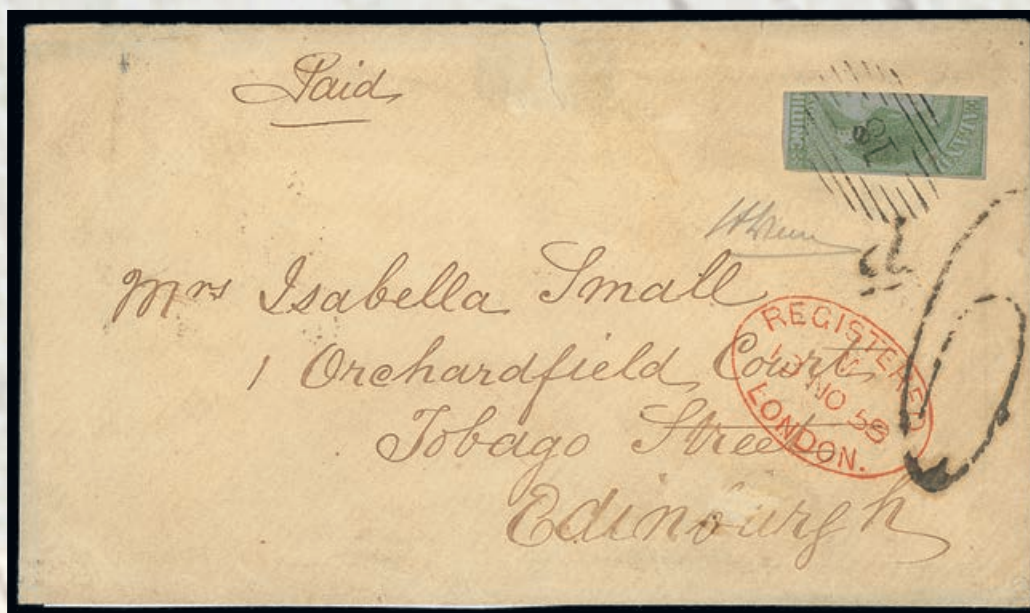 Paid
EALAND
18
Mrs Isabella Small
1 Orchardfield Court
Tobago Street
Edinburgh
REGISTERED
NO 58
LONDON.
6